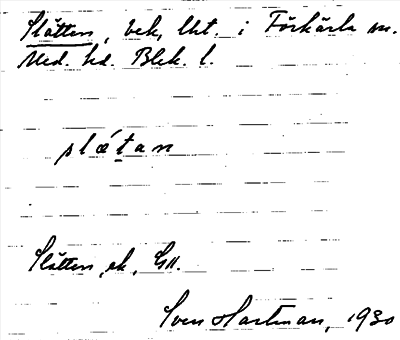 Slätten, bek, lht. i Förkärla sn.
Med. hd. Blek. l.
slǽt̠an
Slätten, ek, GII.
Sven Hartman, 1930